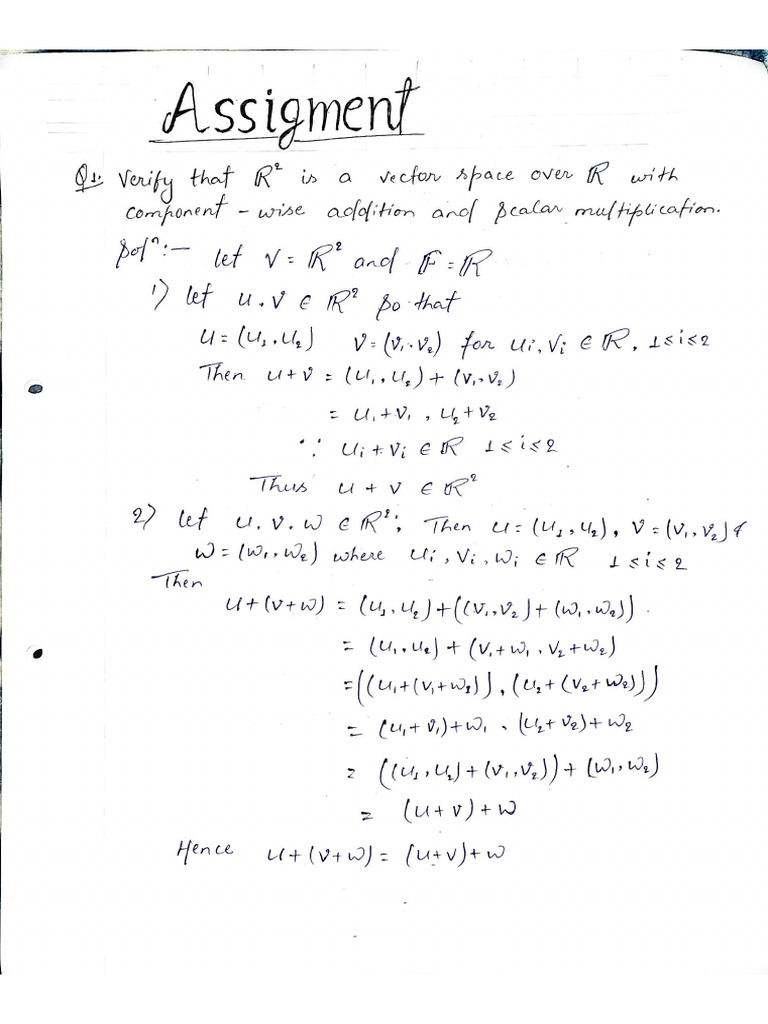 Assigment
Q1. Verify that ℝ² is a vector space over ℝ with
component - wise addition and scalar multiplication.
Solⁿ:— let V = ℝ² and F = ℝ
1) let u, v ∈ ℝ² so that
u = (u₁, u₂) v = (v₁, v₂) for uᵢ, vᵢ ∈ ℝ, 1≤i≤2
Then u+v = (u₁, u₂) + (v₁, v₂)
= u₁+v₁ , u₂+v₂
∵ uᵢ + vᵢ ∈ ℝ 1≤i≤2
Thus u + v ∈ ℝ²
2) let u, v, w ∈ ℝ²; Then u = (u₁, u₂), v = (v₁, v₂) &
w = (w₁, w₂) where uᵢ, vᵢ, wᵢ ∈ ℝ 1≤i≤2
Then
u+(v+w) = (u₁, u₂)+((v₁, v₂)+(w₁, w₂)).
= (u₁, u₂) + (v₁+w₁, v₂+w₂)
=((u₁+(v₁+w₂)), (u₂+(v₂+w₂)))
= (u₁+v₁)+w₁, (u₂+v₂)+w₂
= ((u₁, u₂)+(v₁, v₂))+(w₁, w₂)
= (u+v)+w
Hence u+(v+w) = (u+v)+w